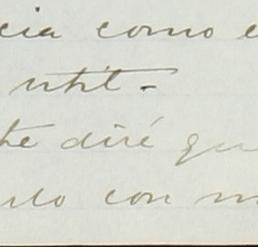 cia como e
util.
te diré qu
lo con m